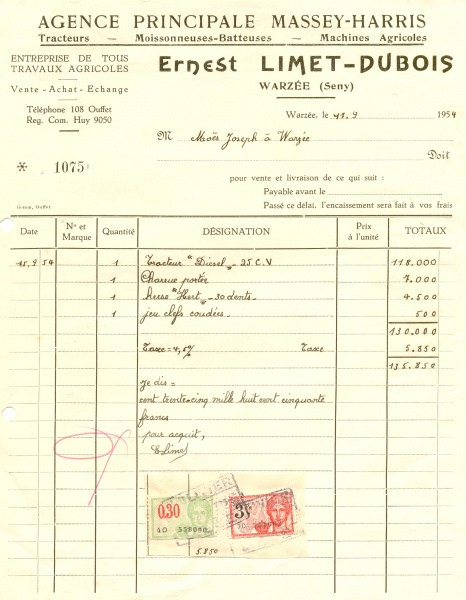 AGENCE PRINCIPALE MASSEY-HARRIS
Tracteurs — Moissonneuses-Batteuses — Machines Agricoles
ENTREPRISE DE TOUS
TRAVAUX AGRICOLES
Vente - Achat - Echange
Téléphone 108 Ouffet
Reg. Com. Huy 9050
Ernest LIMET-DUBOIS
WARZÉE (Seny)
Warzée, le 15.9 1954
M Moës Joseph à Warzée
Doit
* 1075
pour vente et livraison de ce qui suit :
Payable avant le
Passé ce délai, l'encaissement sera fait à vos frais
Ouffet
Date N° et Marque Quantité DÉSIGNATION Prix à l'unité TOTAUX
15.9.54 1 Tracteur "Diesel" 25 C.V 118.000
1 Charrue portée 7.000
1 herse "Hert" - 30 dents - 4.500
1 jeu clefs coudées - 500
130.000
Taxe = 4,5% Taxe 5.850
135.850
je dis =
cent trente-cinq mille huit cent cinquante
francs
pour acquit,
ELimet
0.30
3
5.850